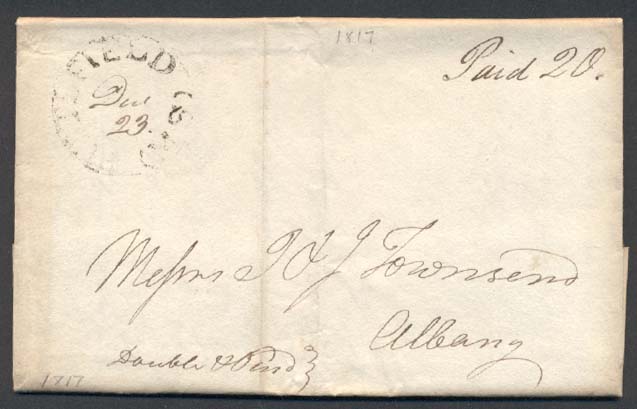 1817
FIELD
Paid 20.
Dec
23.
Messrs I & J Townsend
Albany
Double & Paid
1817